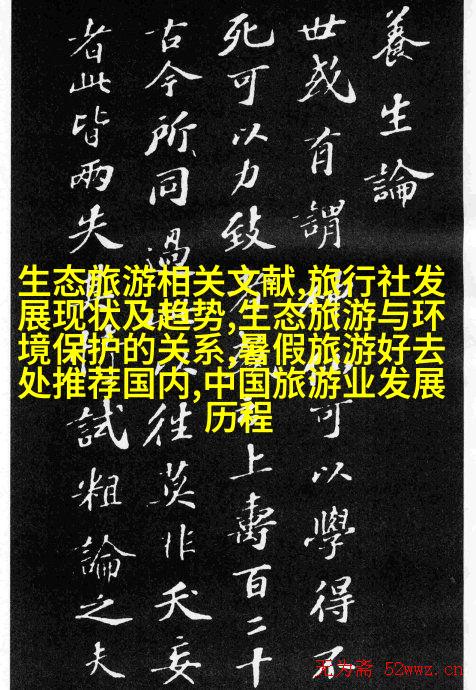 養生論
世或有謂神仙可以學得不
死可以力致者上壽百二十
古今所同過往莫非夭妄
者此皆兩失試粗論之夫
生态旅游相关文献,旅行社发
展现状及趋势,生态旅游与环
境保护的关系,暑假旅游好去
处推荐国内,中国旅游业发展
历程
无为斋 52wwz.cn